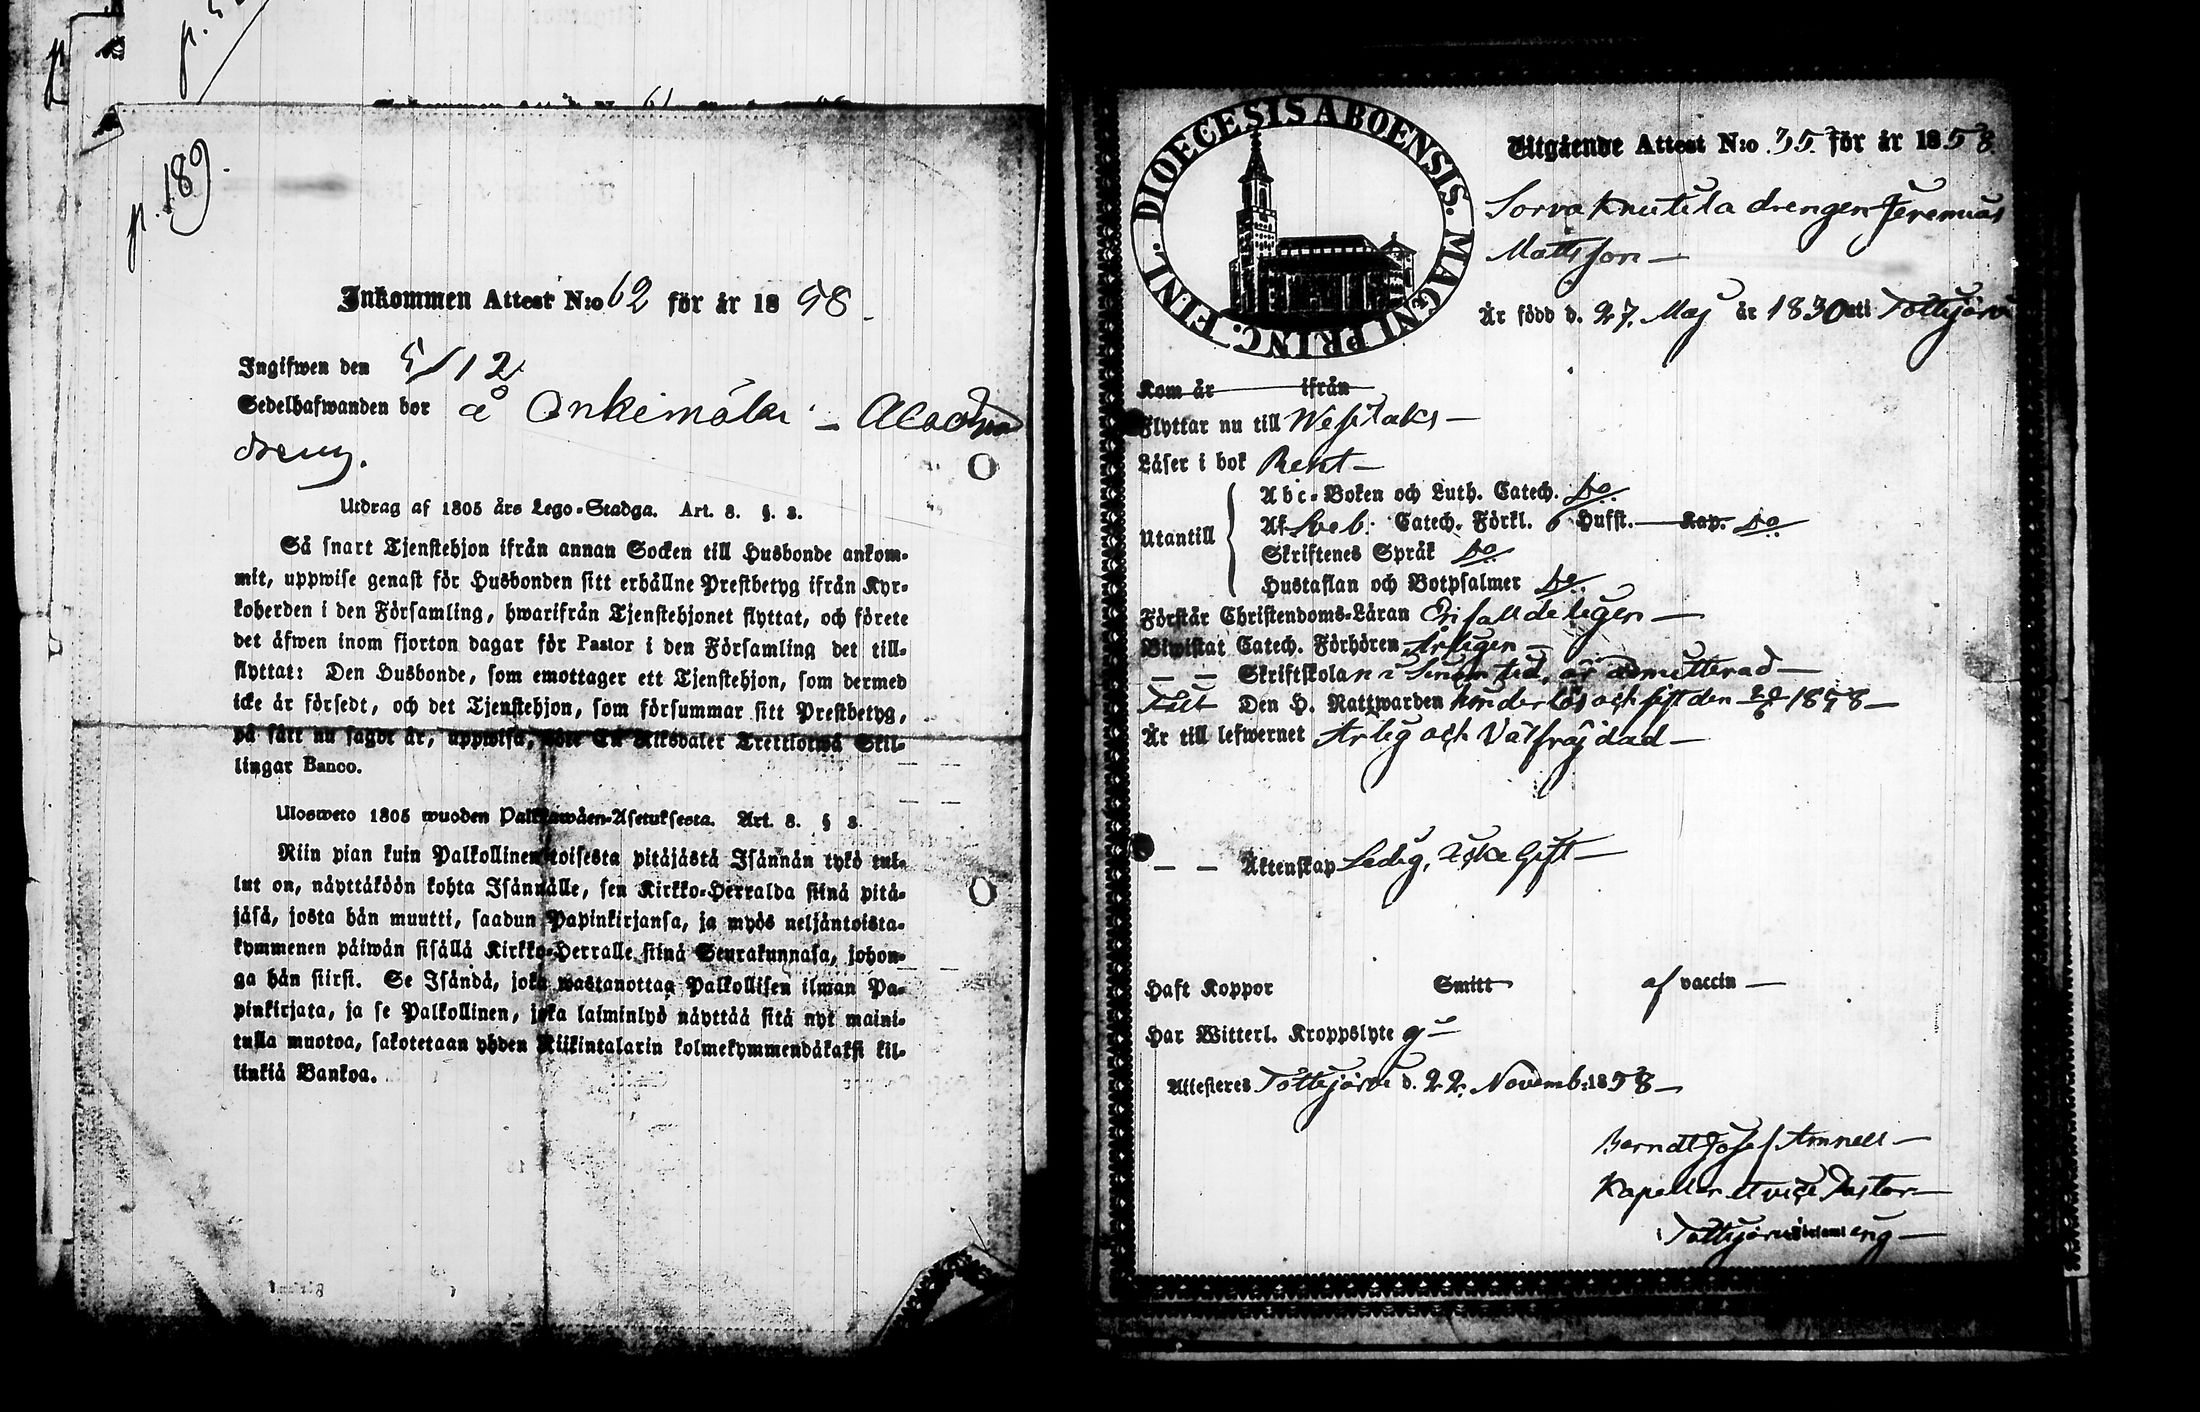 p. 189.
Inkommen Attest N:o 62 för år 1858.
Ingifwen den 5/12
Sedelhafwanden bor å Onkimäki –
dreng.
Utdrag af 1805 års Lego-Stadga. Art. 8. §. 8.
Så snart Tjenstehjon ifrån annan Socken till Husbonde ankom-
mit, uppwise genast för Husbonden sitt erhållne Prestbetyg ifrån Kyr-
koherden i den Församling, hwarifrån Tjenstehjonet flyttat, och förete
det äfwen inom fjorton dagar för Pastor i den Församling det till-
flyttat: Den Husbonde, som emottager ett Tjenstehjon, som dermed
icke är försedt, och det Tjenstehjon, som försummar sitt Prestbetyg,
på sätt nu sagdt är, uppwisa, böte En Riksdaler Trettiotwå Skil-
lingar Banco.
Ulosweto 1805 wuoden Palkkawäen-Asetuksesta. Art. 8. § 8.
Niin pian kuin Palkollinen toisesta pitäjästä Isännän tykö tul-
lut on, näyttäköön kohta Isännälle, sen Kirkko-Herralda siinä pitä-
jäsä, josta hän muutti, saadun Papinkirjansa, ja myös neljäntoista-
kymmenen päiwän sisällä Kirkko-Herralle siinä Seurakunnasa, johon-
ga hän siirsi. Se Isändä, joka wastanottaa Palkollisen ilman Pa-
pinkirjata, ja se Palkollinen, joka laiminlyö näyttää sitä nyt maini-
tulla muotoa, sakotetaan yhden Riikintalarin kolmekymmendäkaksi kil-
linkiä Bankoa.
DIOECESIS ABOENSIS. MAGNI PRINC. FINL.
Utgående Attest N:o 35. för år 1858.
Sorva Knutila drengen Jeremias
Mattsson –
Är född d. 27. Maj år 1830 uti Tottijärvi
Kom år ifrån
Flyttar nu till Wesilaks –
Läser i bok Rent –
Utantill
Abc-Boken och Luth. Catech. do
Af Sveb. Catech. Förkl. 6 Hufst. Kap. do
Skriftenes Språk do
Hustaflan och Botpsalmer do
Förstår Christendoms-Läran Enfaldeligen –
Biwistat Catech. Förhören Årligen –
— — Skriftskolan i sinom tid, är admitterad –
Fått Den H. Nattwarden hinderlös och sist den 20/6 1858 –
Är till lefwernet Ärlig och Välfräjdad –
— — Äktenskap Ledig, Icke Gift –
Haft Koppor Smitt af vaccin —
Har Witterl. Kroppslyte ej –
Attesteres Tottijärvi d. 22. Novemb: 1858 –
Berndt Josef Amnell –
Kapellan et vice Pastor –
i Tottijärvi Församling –